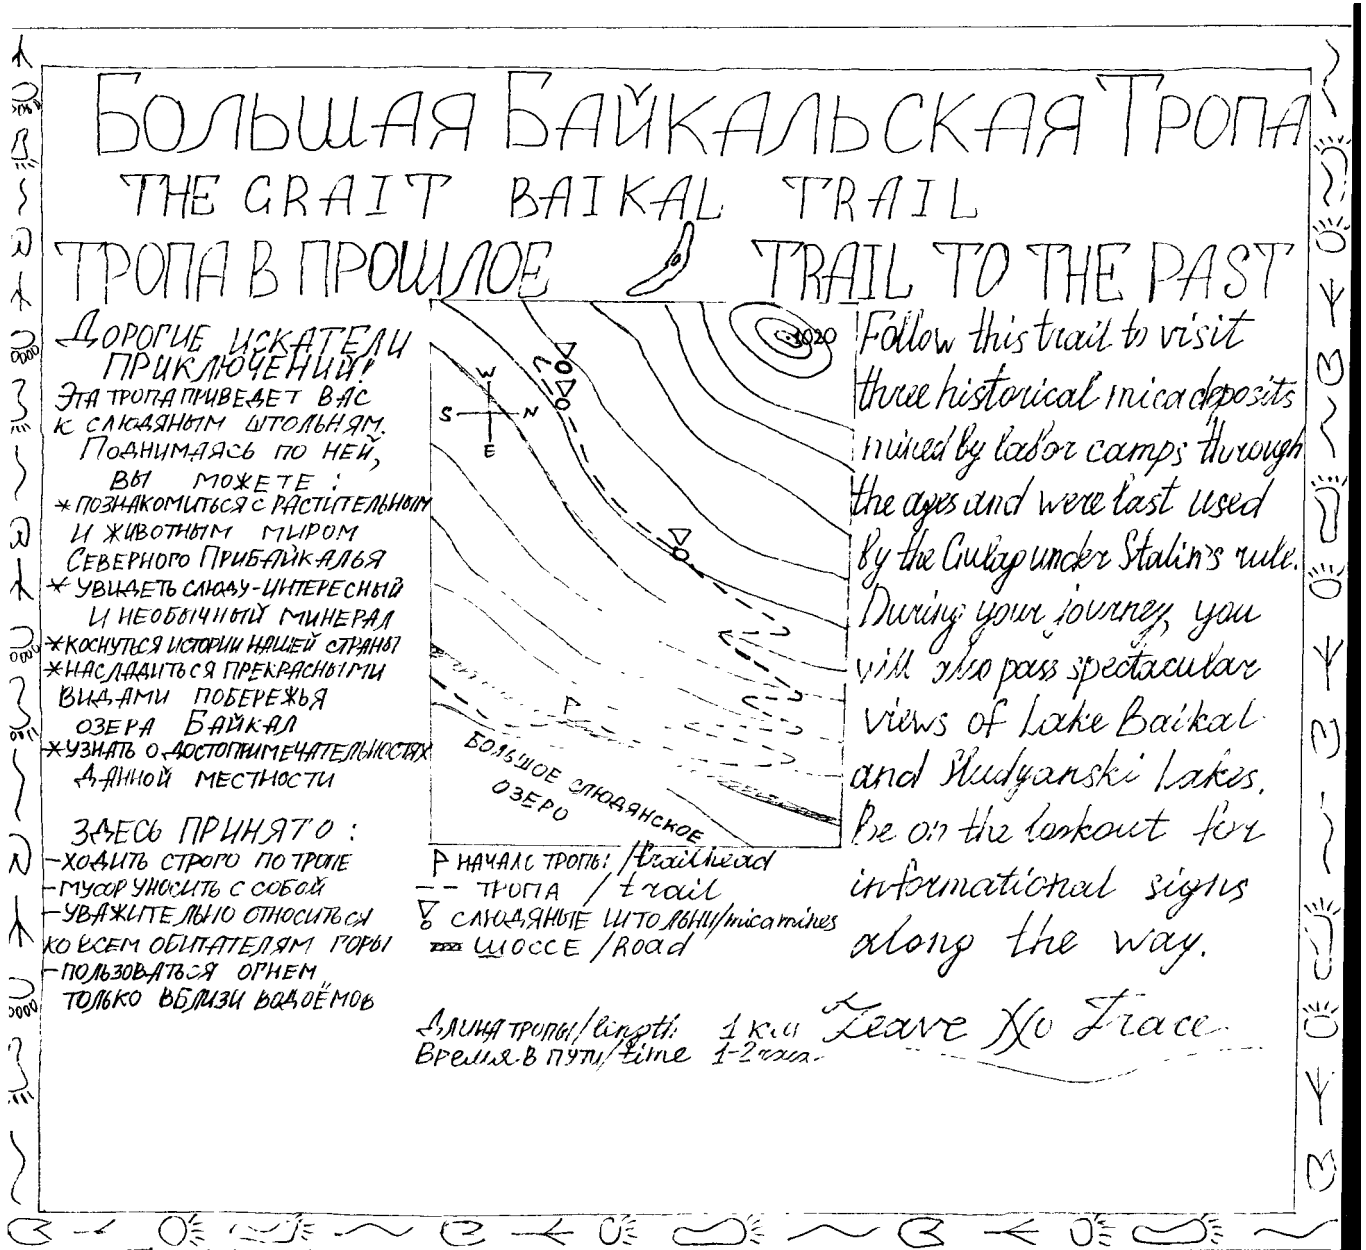 Большая Байкальская Тропа
THE GRAIT BAIKAL TRAIL
ТРОПА В ПРОШЛОЕ
TRAIL TO THE PAST
Дорогие искатели
приключений!
Эта тропа приведет вас
к слюдяным штольням.
Поднимаясь по ней,
вы можете:
* познакомиться с растительным
и животным миром
Северного Прибайкалья
* увидеть слюду-интересный
и необычный минерал
* коснуться истории нашей страны
* насладиться прекрасными
видами побережья
озера Байкал
* узнать о достопримечательностях
данной местности
Здесь принято:
-ходить строго по тропе
-мусор уносить с собой
-уважительно относиться
ко всем обитателям горы
-пользоваться огнем
только вблизи водоёмов
1020
W
S N
E
Большое Слюдянское
озеро
Начало тропы /trailhead
Тропа / trail
Слюдяные штольни/mica mines
Шоссе /Road
Длина тропы/length 1 км
Время в пути/time 1-2 часа.
Follow this trail to visit
three historical mica deposits
mined by labor camps through
the ages and were last used
by the Gulag under Stalin's rule.
During your journey, you
will also pass spectacular
views of Lake Baikal
and Sludyanski Lakes.
Be on the lookout for
informational signs
along the way.
Leave No Trace